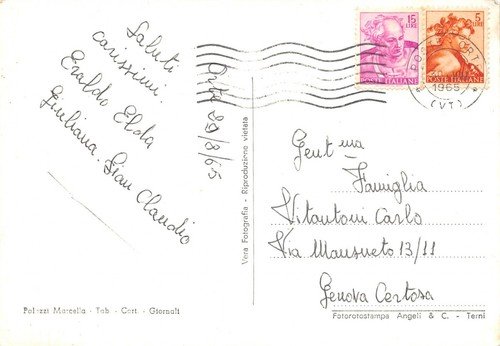 Saluti
carissimi.
Eraldo Elda
Giuliana. Gian Claudio
Orte 29/8/65
15
LIRE
POSTE ITALIANE
5
LIRE
POSTE ITALIANE
1965
(VT)
Gent.ma
Famiglia
Vitantoni Carlo
Via Mansueto 13/11
Genova Certosa
Vera Fotografia - Riproduzione vietata
Palazzi Marcella - Tab. - Cart. - Giornali
Fotorotostampa Angeli & C. - Terni